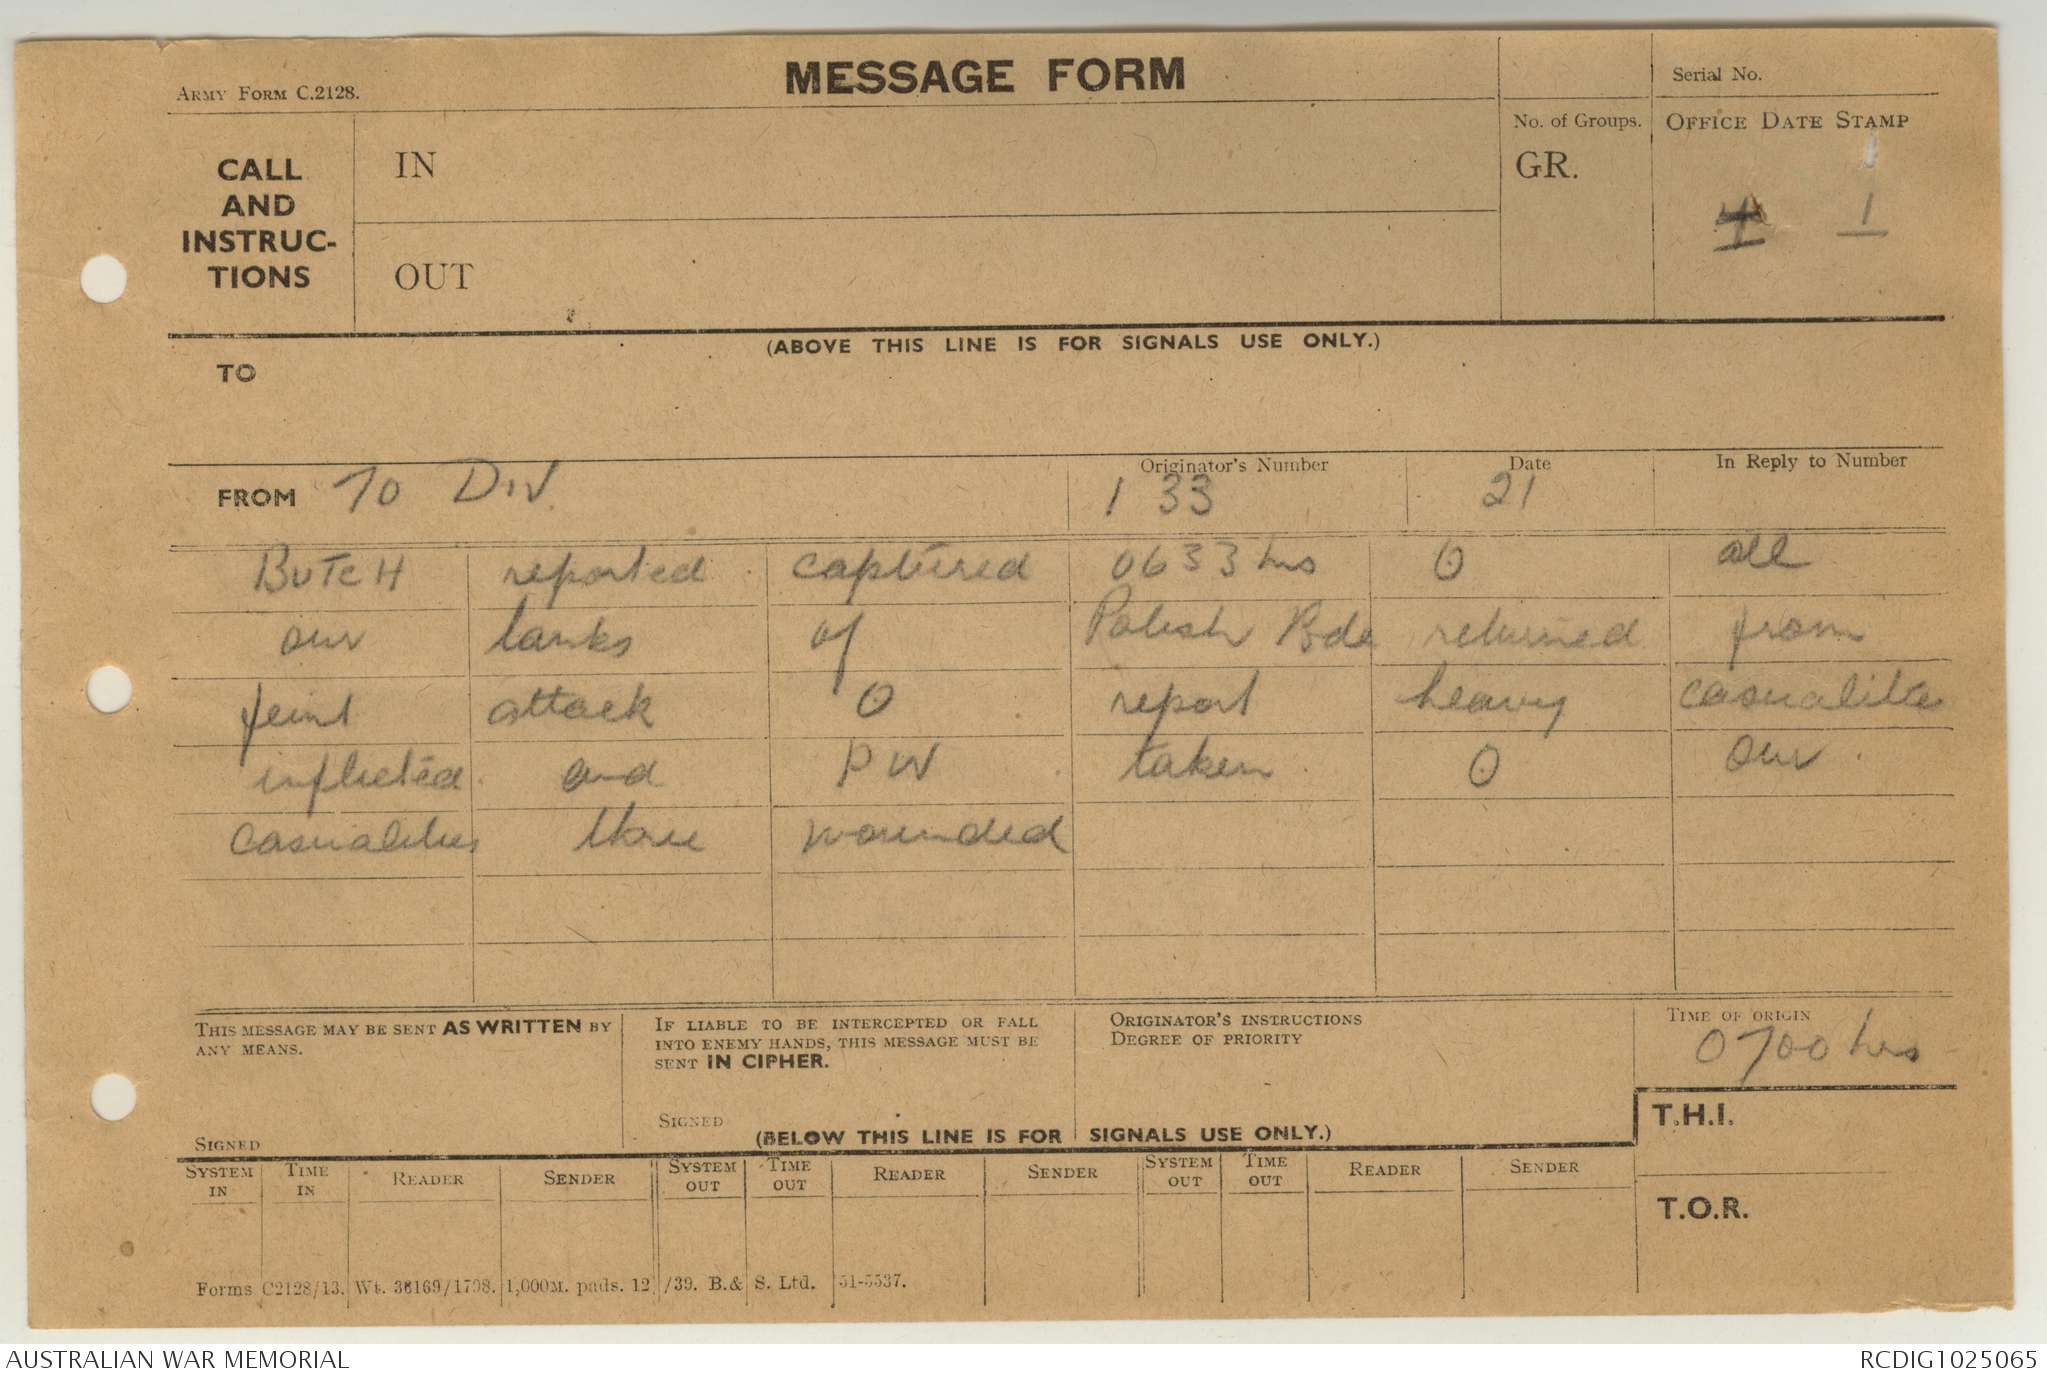 MESSAGE FORM
ARMY FORM C.2128.
Serial No.
CALL AND INSTRUC-TIONS
IN
No. of Groups.
GR.
OFFICE DATE STAMP
1
OUT
(ABOVE THIS LINE IS FOR SIGNALS USE ONLY.)
TO
FROM 70 DIV. Originator's Number 133 Date 21 In Reply to Number
BUTCH reported captured 0633 hrs O all
our tanks of Polish Bde returned from
feint attack O report heavy casualites
inflicted and PW taken O our
casualities three wounded
THIS MESSAGE MAY BE SENT AS WRITTEN BY
ANY MEANS.
SIGNED
IF LIABLE TO BE INTERCEPTED OR FALL
INTO ENEMY HANDS, THIS MESSAGE MUST BE
SENT IN CIPHER.
SIGNED
ORIGINATOR'S INSTRUCTIONS
DEGREE OF PRIORITY
TIME OF ORIGIN
0700 hrs
(BELOW THIS LINE IS FOR SIGNALS USE ONLY.)
T.H.I.
SYSTEM IN TIME IN READER SENDER SYSTEM OUT TIME OUT READER SENDER SYSTEM OUT TIME OUT READER SENDER
T.O.R.
Forms C2128/13. Wt. 36169/1798. 1,000M. pads. 12/39. B.& S. Ltd. 51-5537.
AUSTRALIAN WAR MEMORIAL RCDIG1025065